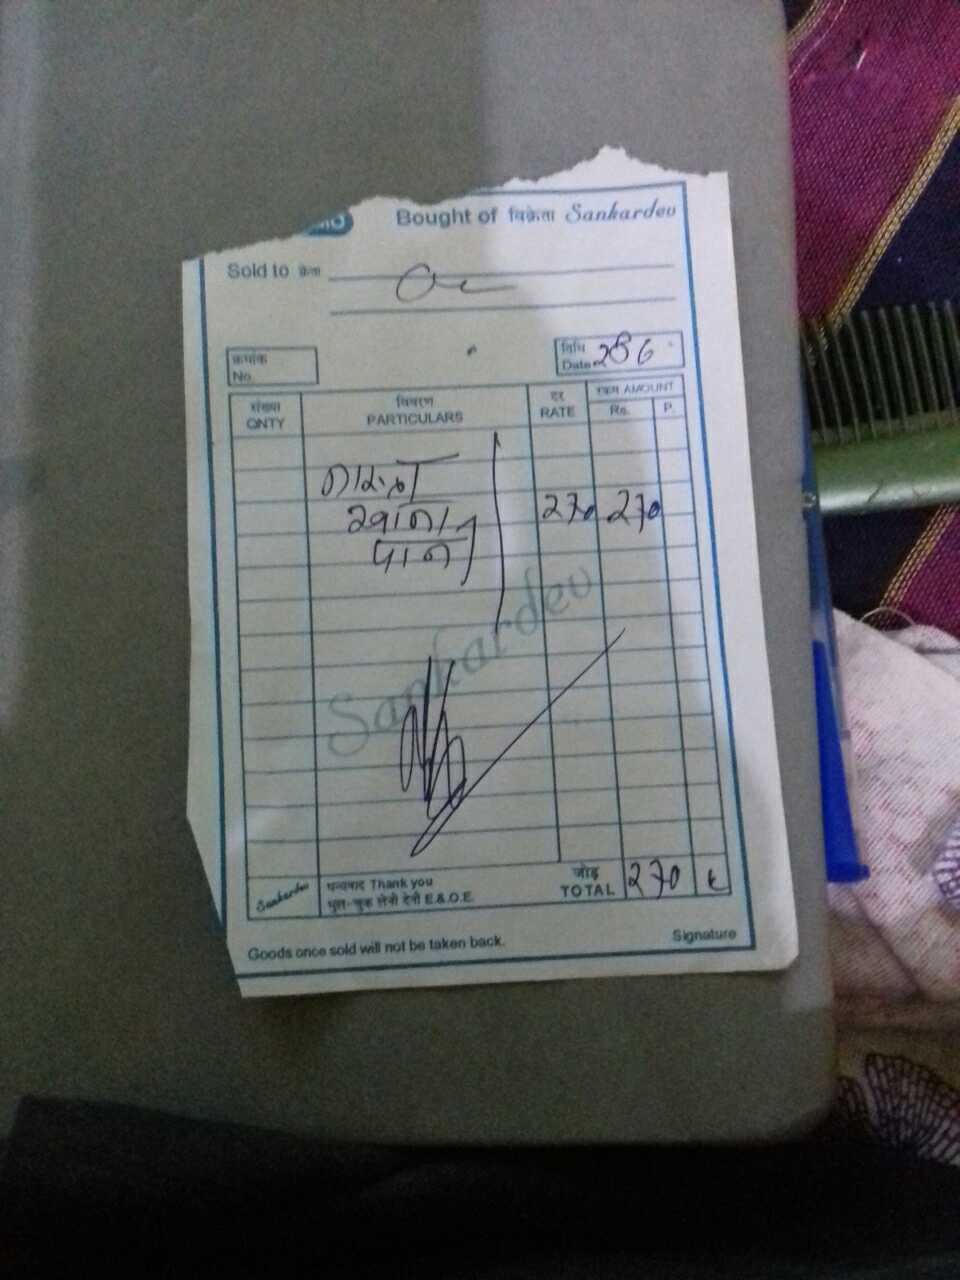 Bought of विक्रेता Sankardev
Sold to क्रेता
क्रमांक
No.
तिथि
Date 256
संख्या
QNTY
विवरण
PARTICULARS
दर
RATE
रकम AMOUNT
Rs. P.
270 270
Sankardev
Sankardev
धन्यवाद Thank you
भूल-चूक लेनी देनी E.&.O.E.
जोड़
TOTAL 270
Goods once sold will not be taken back.
Signature